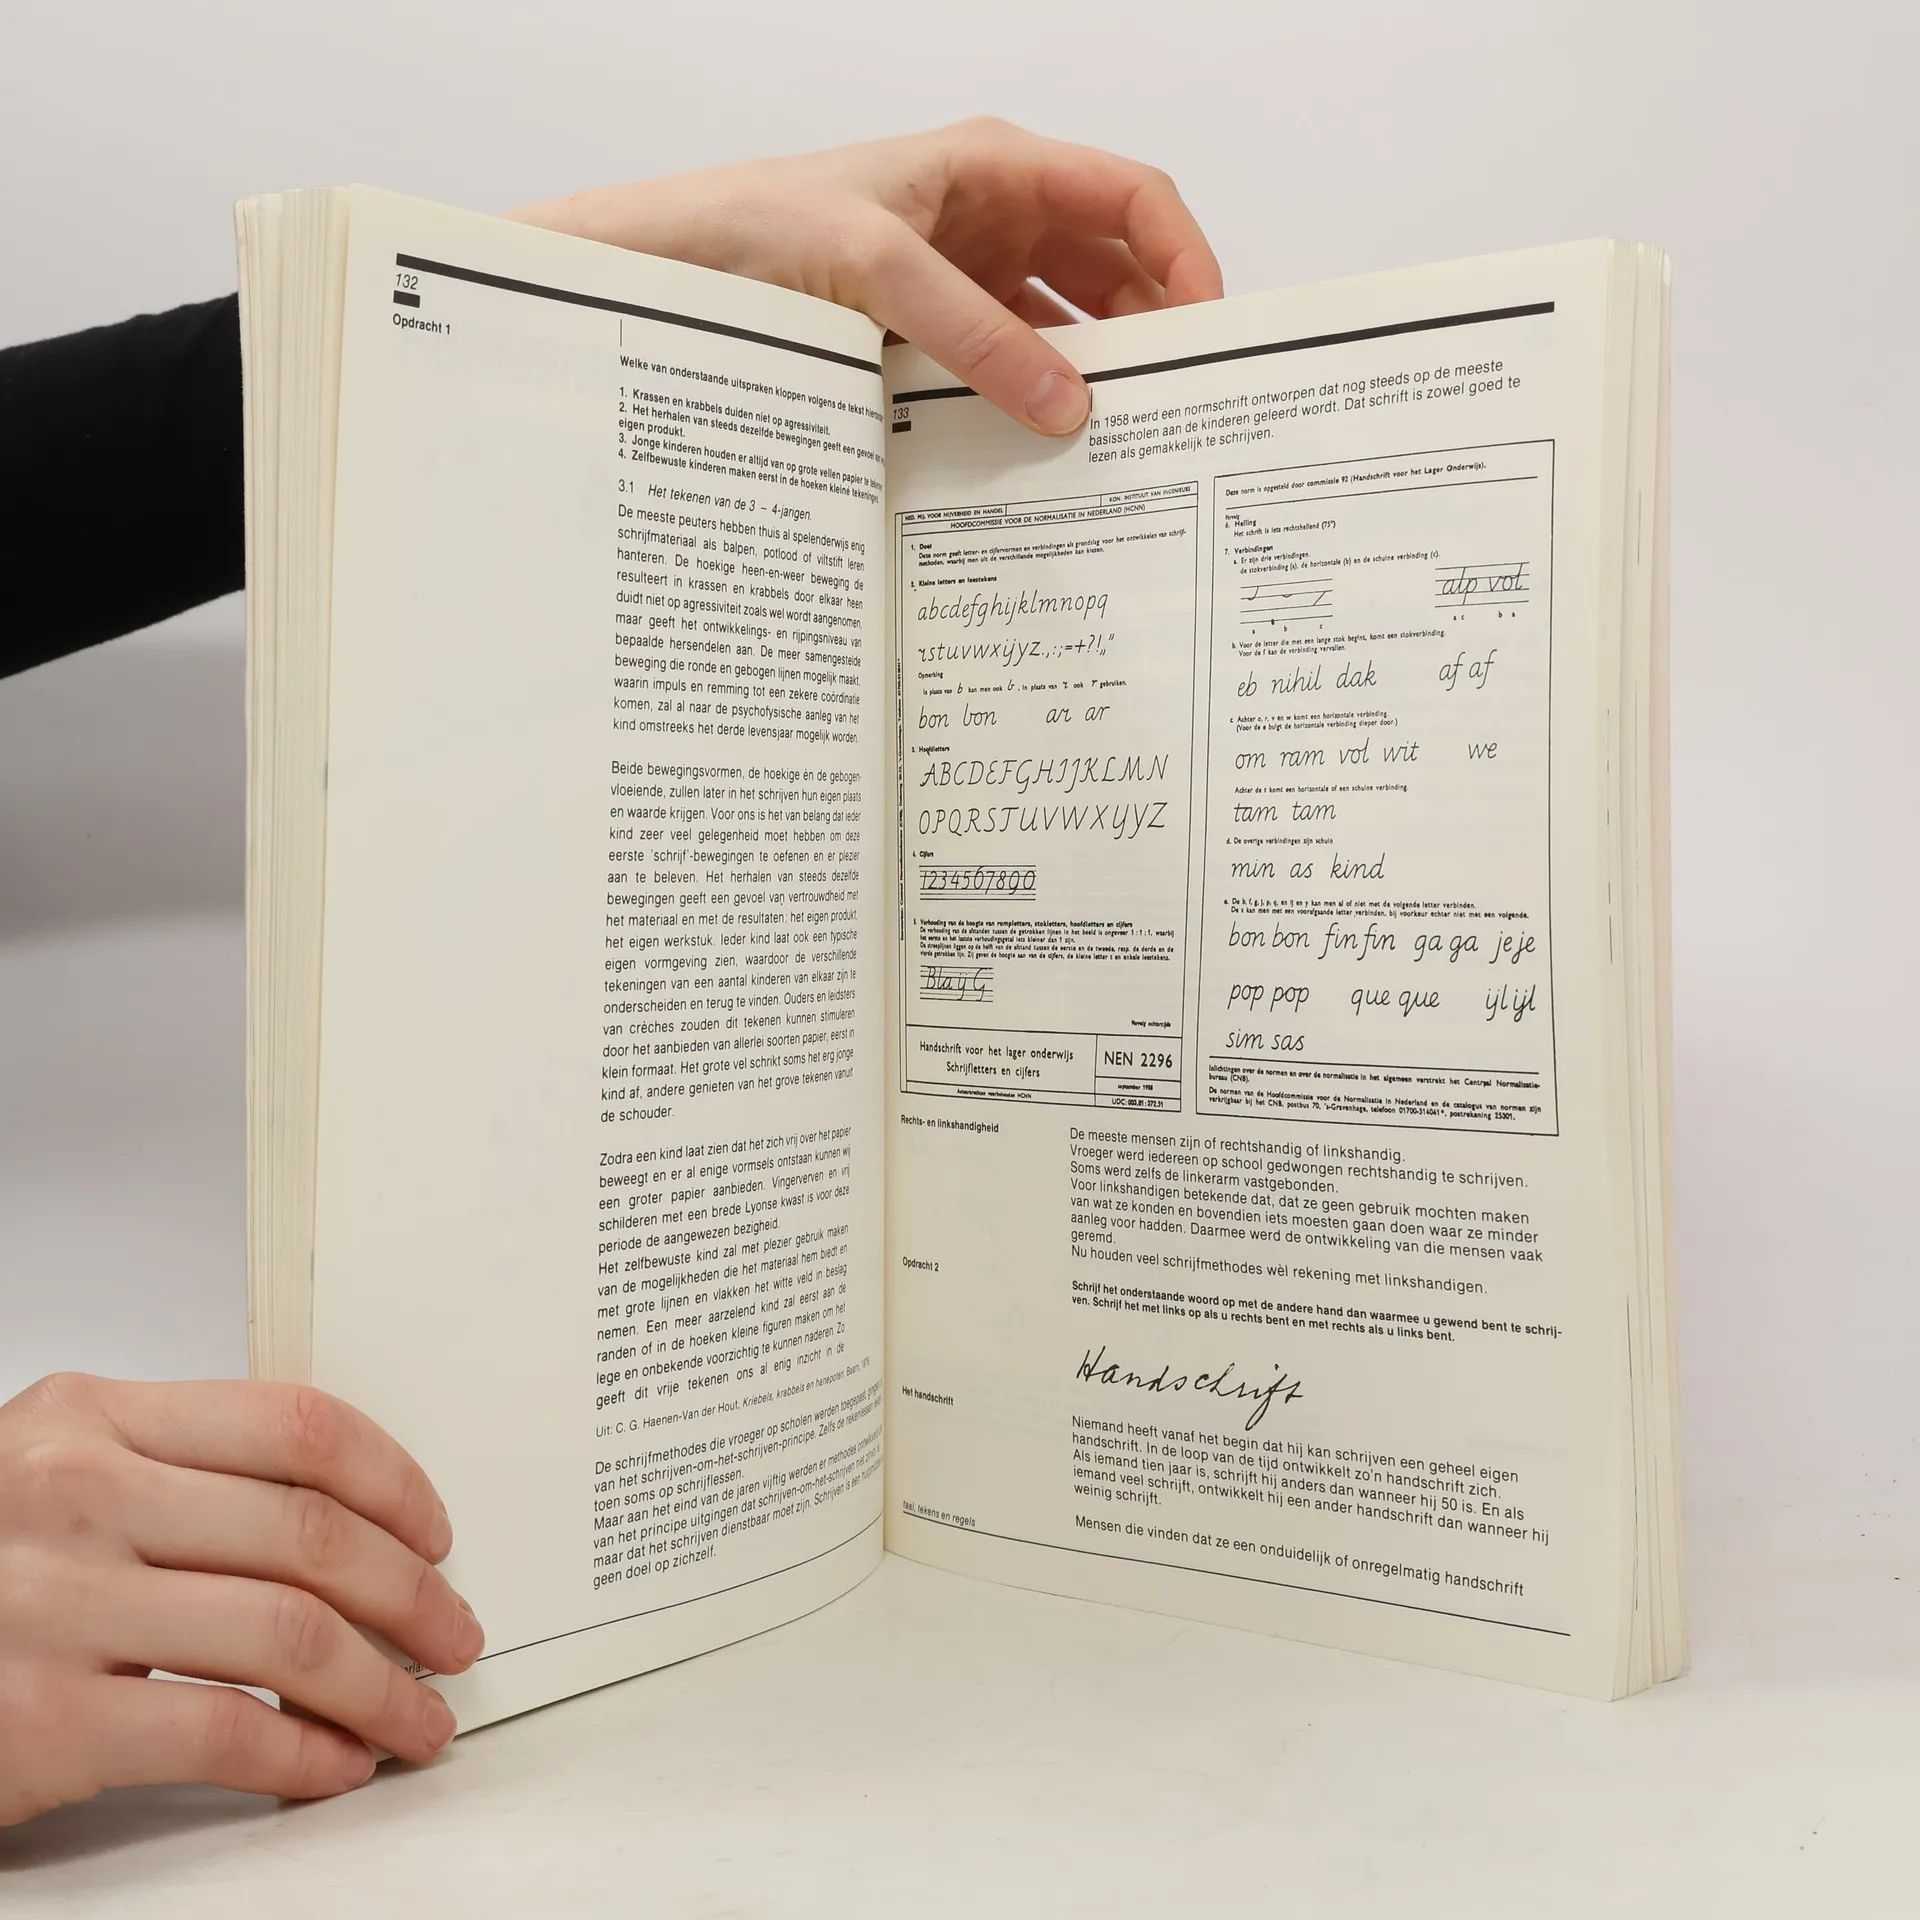 132
Opdracht 1
Welke van onderstaande uitspraken kloppen volgens de tekst
1. Krassen en krabbels duiden niet op agressiviteit.
2. Het herhalen van steeds dezelfde bewegingen geeft een gevoel
eigen produkt.
3. Jonge kinderen houden er altijd van op grote vellen papier te
4. Zelfbewuste kinderen maken eerst in de hoeken kleine tekeningen.
3.1 Het tekenen van de 3 – 4-jarigen.
De meeste peuters hebben thuis al spelenderwijs enig
schrijfmateriaal als balpen, potlood of viltstift leren
hanteren. De hoekige heen-en-weer beweging die
resulteert in krassen en krabbels door elkaar heen
duidt niet op agressiviteit zoals wel wordt aangenomen,
maar geeft het ontwikkelings- en rijpingsniveau van
bepaalde hersendelen aan. De meer samengestelde
beweging die ronde en gebogen lijnen mogelijk maakt,
waarin impuls en remming tot een zekere coördinatie
komen, zal al naar de psychofysische aanleg van het
kind omstreeks het derde levensjaar mogelijk worden.
Beide bewegingsvormen, de hoekige én de gebogen-
vloeiende, zullen later in het schrijven hun eigen plaats
en waarde krijgen. Voor ons is het van belang dat ieder
kind zeer veel gelegenheid moet hebben om deze
eerste 'schrijf'-bewegingen te oefenen en er plezier
aan te beleven. Het herhalen van steeds dezelfde
bewegingen geeft een gevoel van vertrouwdheid met
het materiaal en met de resultaten: het eigen produkt,
het eigen werkstuk. Ieder kind laat ook een typische
eigen vormgeving zien, waardoor de verschillende
tekeningen van een aantal kinderen van elkaar zijn te
onderscheiden en terug te vinden. Ouders en leidsters
van crèches zouden dit tekenen kunnen stimuleren
door het aanbieden van allerlei soorten papier, eerst in
klein formaat. Het grote vel schrikt soms het erg jonge
kind af, andere genieten van het grove tekenen vanuit
de schouder.
Zodra een kind laat zien dat het zich vrij over het papier
beweegt en er al enige vormsels ontstaan kunnen wij
een groter papier aanbieden. Vingerverven en vrij
schilderen met een brede Lyonse kwast is voor deze
periode de aangewezen bezigheid.
Het zelfbewuste kind zal met plezier gebruik maken
van de mogelijkheden die het materiaal hem biedt en
met grote lijnen en vlakken het witte veld in beslag
nemen. Een meer aarzelend kind zal eerst aan de
randen of in de hoeken kleine figuren maken om het
lege en onbekende voorzichtig te kunnen naderen. Zo
geeft dit vrije tekenen ons al enig inzicht in de
Uit: C. G. Haenen-Van der Hout, Kriebels, krabbels en hanepoten. Baarn, 1975.
De schrijfmethodes die vroeger op scholen werden toegepast, gingen
van het schrijven-om-het-schrijven-principe. Zelfs de rekenlessen
toen soms op schrijflessen.
Maar aan het eind van de jaren vijftig werden er methodes ontwikkeld
van het principe uitgingen dat schrijven-om-het-schrijven niet zinvol is,
maar dat het schrijven dienstbaar moet zijn. Schrijven is een
geen doel op zichzelf.
133
In 1958 werd een normschrift ontworpen dat nog steeds op de meeste
basisscholen aan de kinderen geleerd wordt. Dat schrift is zowel goed te
lezen als gemakkelijk te schrijven.
NED. MIJ. VOOR NIJVERHEID EN HANDEL
KON. INSTITUUT VAN INGENIEURS
HOOFDCOMMISSIE VOOR DE NORMALISATIE IN NEDERLAND (HCNN)
1. Doel
Deze norm geeft letter- en cijfervormen en verbindingen als grondslag voor het ontwikkelen van schrijf-
methoden, waarbij men uit de verschillende mogelijkheden kan kiezen.
2. Kleine letters en leestekens
abcdefghijklmnopq
rstuvwxijyz.,:;=+?!„”
Opmerking
In plaats van b kan men ook b. In plaats van r ook r gebruiken.
bon bon ar ar
3. Hoofdletters
ABCDEFGHIJKLMN
OPQRSTUVWXYYZ
4. Cijfers
1234567890
5. Verhouding van de hoogte van rompletters, stokletters, hoofdletters en cijfers
De verhouding van de afstanden tussen de getrokken lijnen in het beeld is ongeveer 1 : 1 : 1, waarbij
het eerste en het laatste verhoudingsgetal iets kleiner dan 1 zijn.
De streeplijnen liggen op de helft van de afstand tussen de eerste en de tweede, resp. de derde en de
vierde getrokken lijn. Zij geven de hoogte aan van de cijfers, de kleine letter t en enkele leestekens.
Bla ij G
Vervolg achterzijde
Handschrift voor het lager onderwijs
Schrijfletters en cijfers
NEN 2296
september 1958
Auteursrechten voorbehouden HCNN
UDC: 003.81:372.51
Deze norm is opgesteld door commissie 92 (Handschrift voor het Lager Onderwijs).
Vervolg
6. Helling
Het schrift is iets rechtshellend (75°)
7. Verbindingen
a. Er zijn drie verbindingen.
de stokverbinding (a), de horizontale (b) en de schuine verbinding (c).
alp vol
a b c
a c b a
b. Voor de letter die met een lange stok begint, komt een stokverbinding.
Voor de f kan de verbinding vervallen.
eb nihil dak af af
c. Achter o, r, v en w komt een horizontale verbinding.
(Voor de e buigt de horizontale verbinding dieper door.)
om ram vol wit we
Achter de t komt een horizontale of een schuine verbinding.
tam tam
d. De overige verbindingen zijn schuin
min as kind
e. De b, f, g, j, p, q, en ij en y kan men al of niet met de volgende letter verbinden.
De s kan men met een voorafgaande letter verbinden, bij voorkeur echter niet met een volgende.
bon bon fin fin ga ga je je
pop pop que que ijl ijl
sim sas
Inlichtingen over de normen en over de normalisatie in het algemeen verstrekt het Centraal Normalisatie-
bureau (CNB).
De normen van de Hoofdcommissie voor de Normalisatie in Nederland en de catalogus van normen zijn
verkrijgbaar bij het CNB, postbus 70, 's-Gravenhage, telefoon 01700-514041*, postrekening 25301.
Rechts- en linkshandigheid
De meeste mensen zijn of rechtshandig of linkshandig.
Vroeger werd iedereen op school gedwongen rechtshandig te schrijven.
Soms werd zelfs de linkerarm vastgebonden.
Voor linkshandigen betekende dat, dat ze geen gebruik mochten maken
van wat ze konden en bovendien iets moesten gaan doen waar ze minder
aanleg voor hadden. Daarmee werd de ontwikkeling van die mensen vaak
geremd.
Nu houden veel schrijfmethodes wèl rekening met linkshandigen.
Opdracht 2
Schrijf het onderstaande woord op met de andere hand dan waarmee u gewend bent te schrij-
ven. Schrijf het met links op als u rechts bent en met rechts als u links bent.
Handschrift
Het handschrift
Niemand heeft vanaf het begin dat hij kan schrijven een geheel eigen
handschrift. In de loop van de tijd ontwikkelt zo'n handschrift zich.
Als iemand tien jaar is, schrijft hij anders dan wanneer hij 50 is. En als
iemand veel schrijft, ontwikkelt hij een ander handschrift dan wanneer hij
weinig schrijft.
Mensen die vinden dat ze een onduidelijk of onregelmatig handschrift
taal, tekens en regels